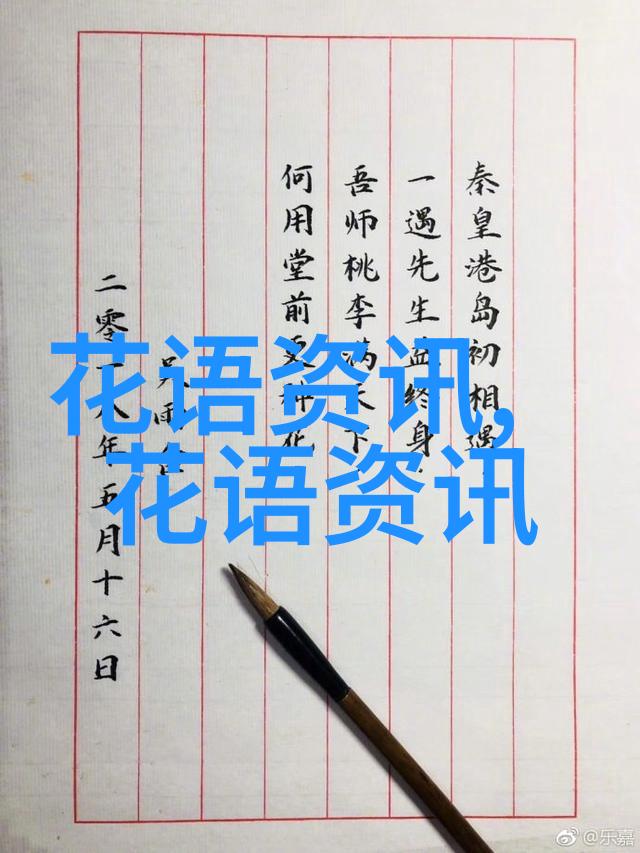 秦皇港岛初相遇
一遇先生益终身.
吾师桃李满天下
何用堂前更种花
吴雨
二零一八年五月十六日
花语资讯,
花语资讯
@乐嘉